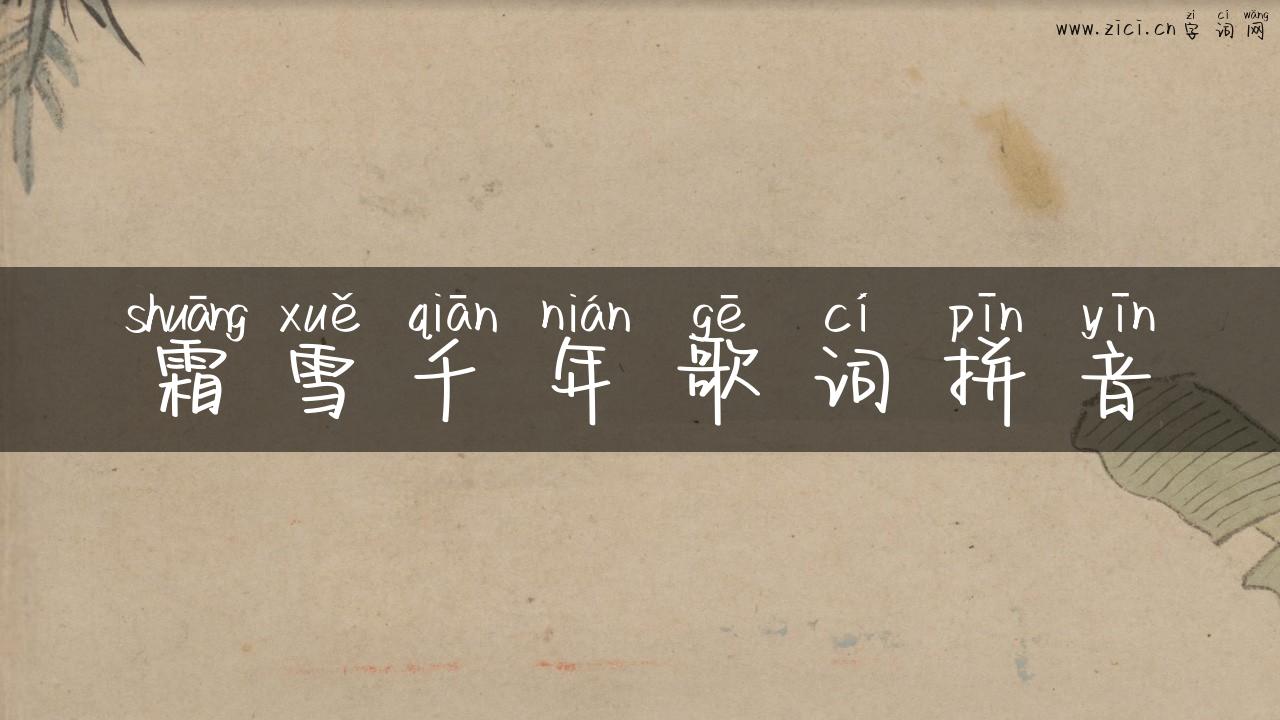 zì cí wǎng
www.zici.cn 字词网
shuāng xuě qiān nián gē cí pīn yīn
霜雪千年歌词拼音